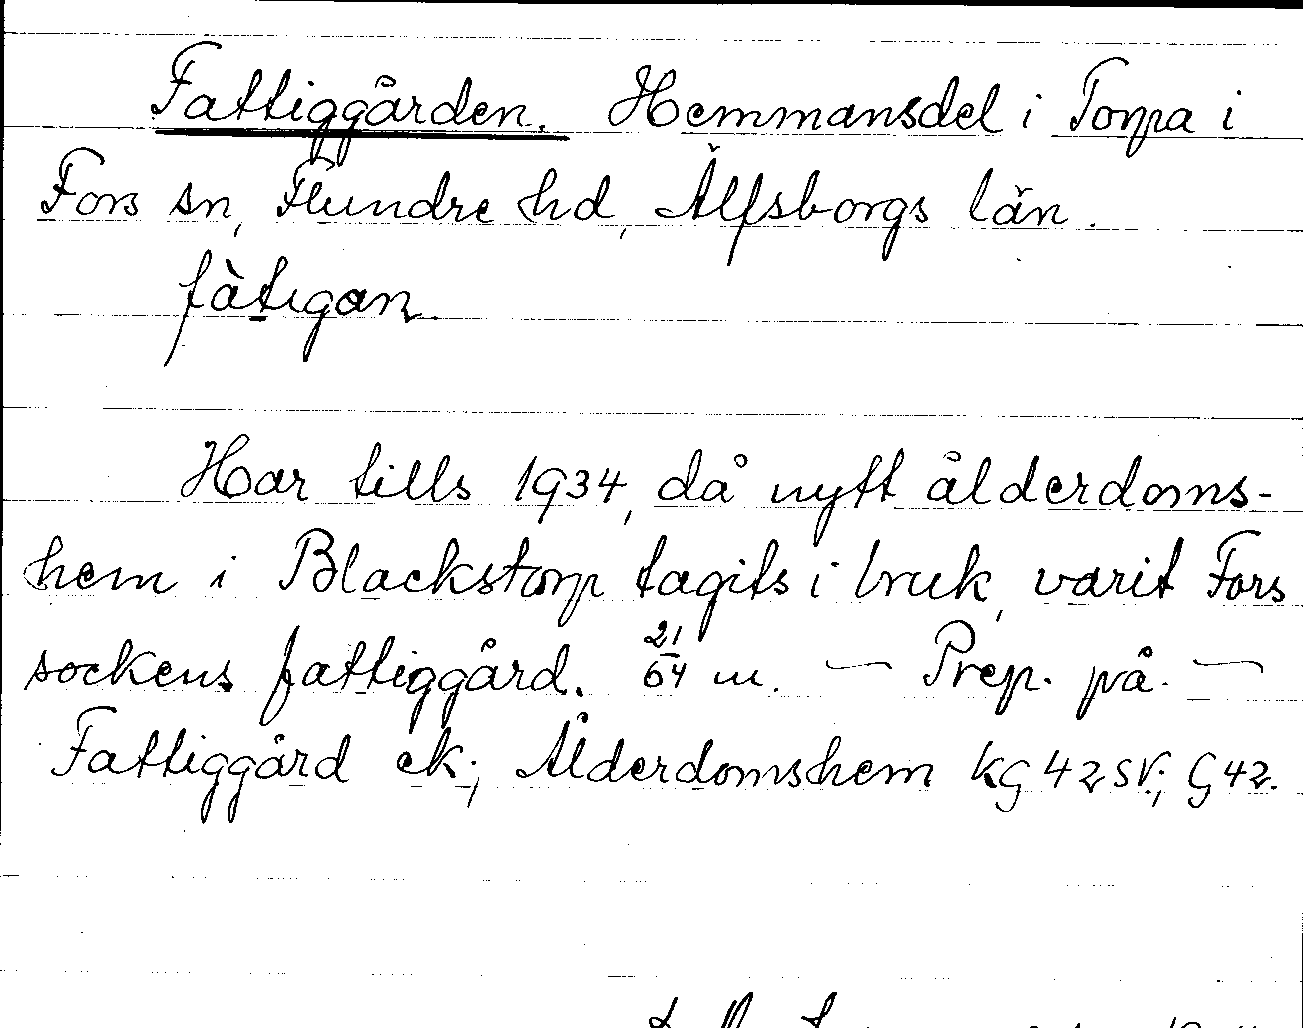 Fattiggården. Hemmansdel i Torpa i
Fors sn, Flundre hd, Älfsborgs län.
fàtigan.
Har tills 1934, då nytt ålderdoms-
hem i Blackstorp tagits i bruk, varit Fors
sockens fattiggård. 21/64 m. — Prep. på. —
Fattiggård ek.; Ålderdomshem KG 42 SV.; G 42.